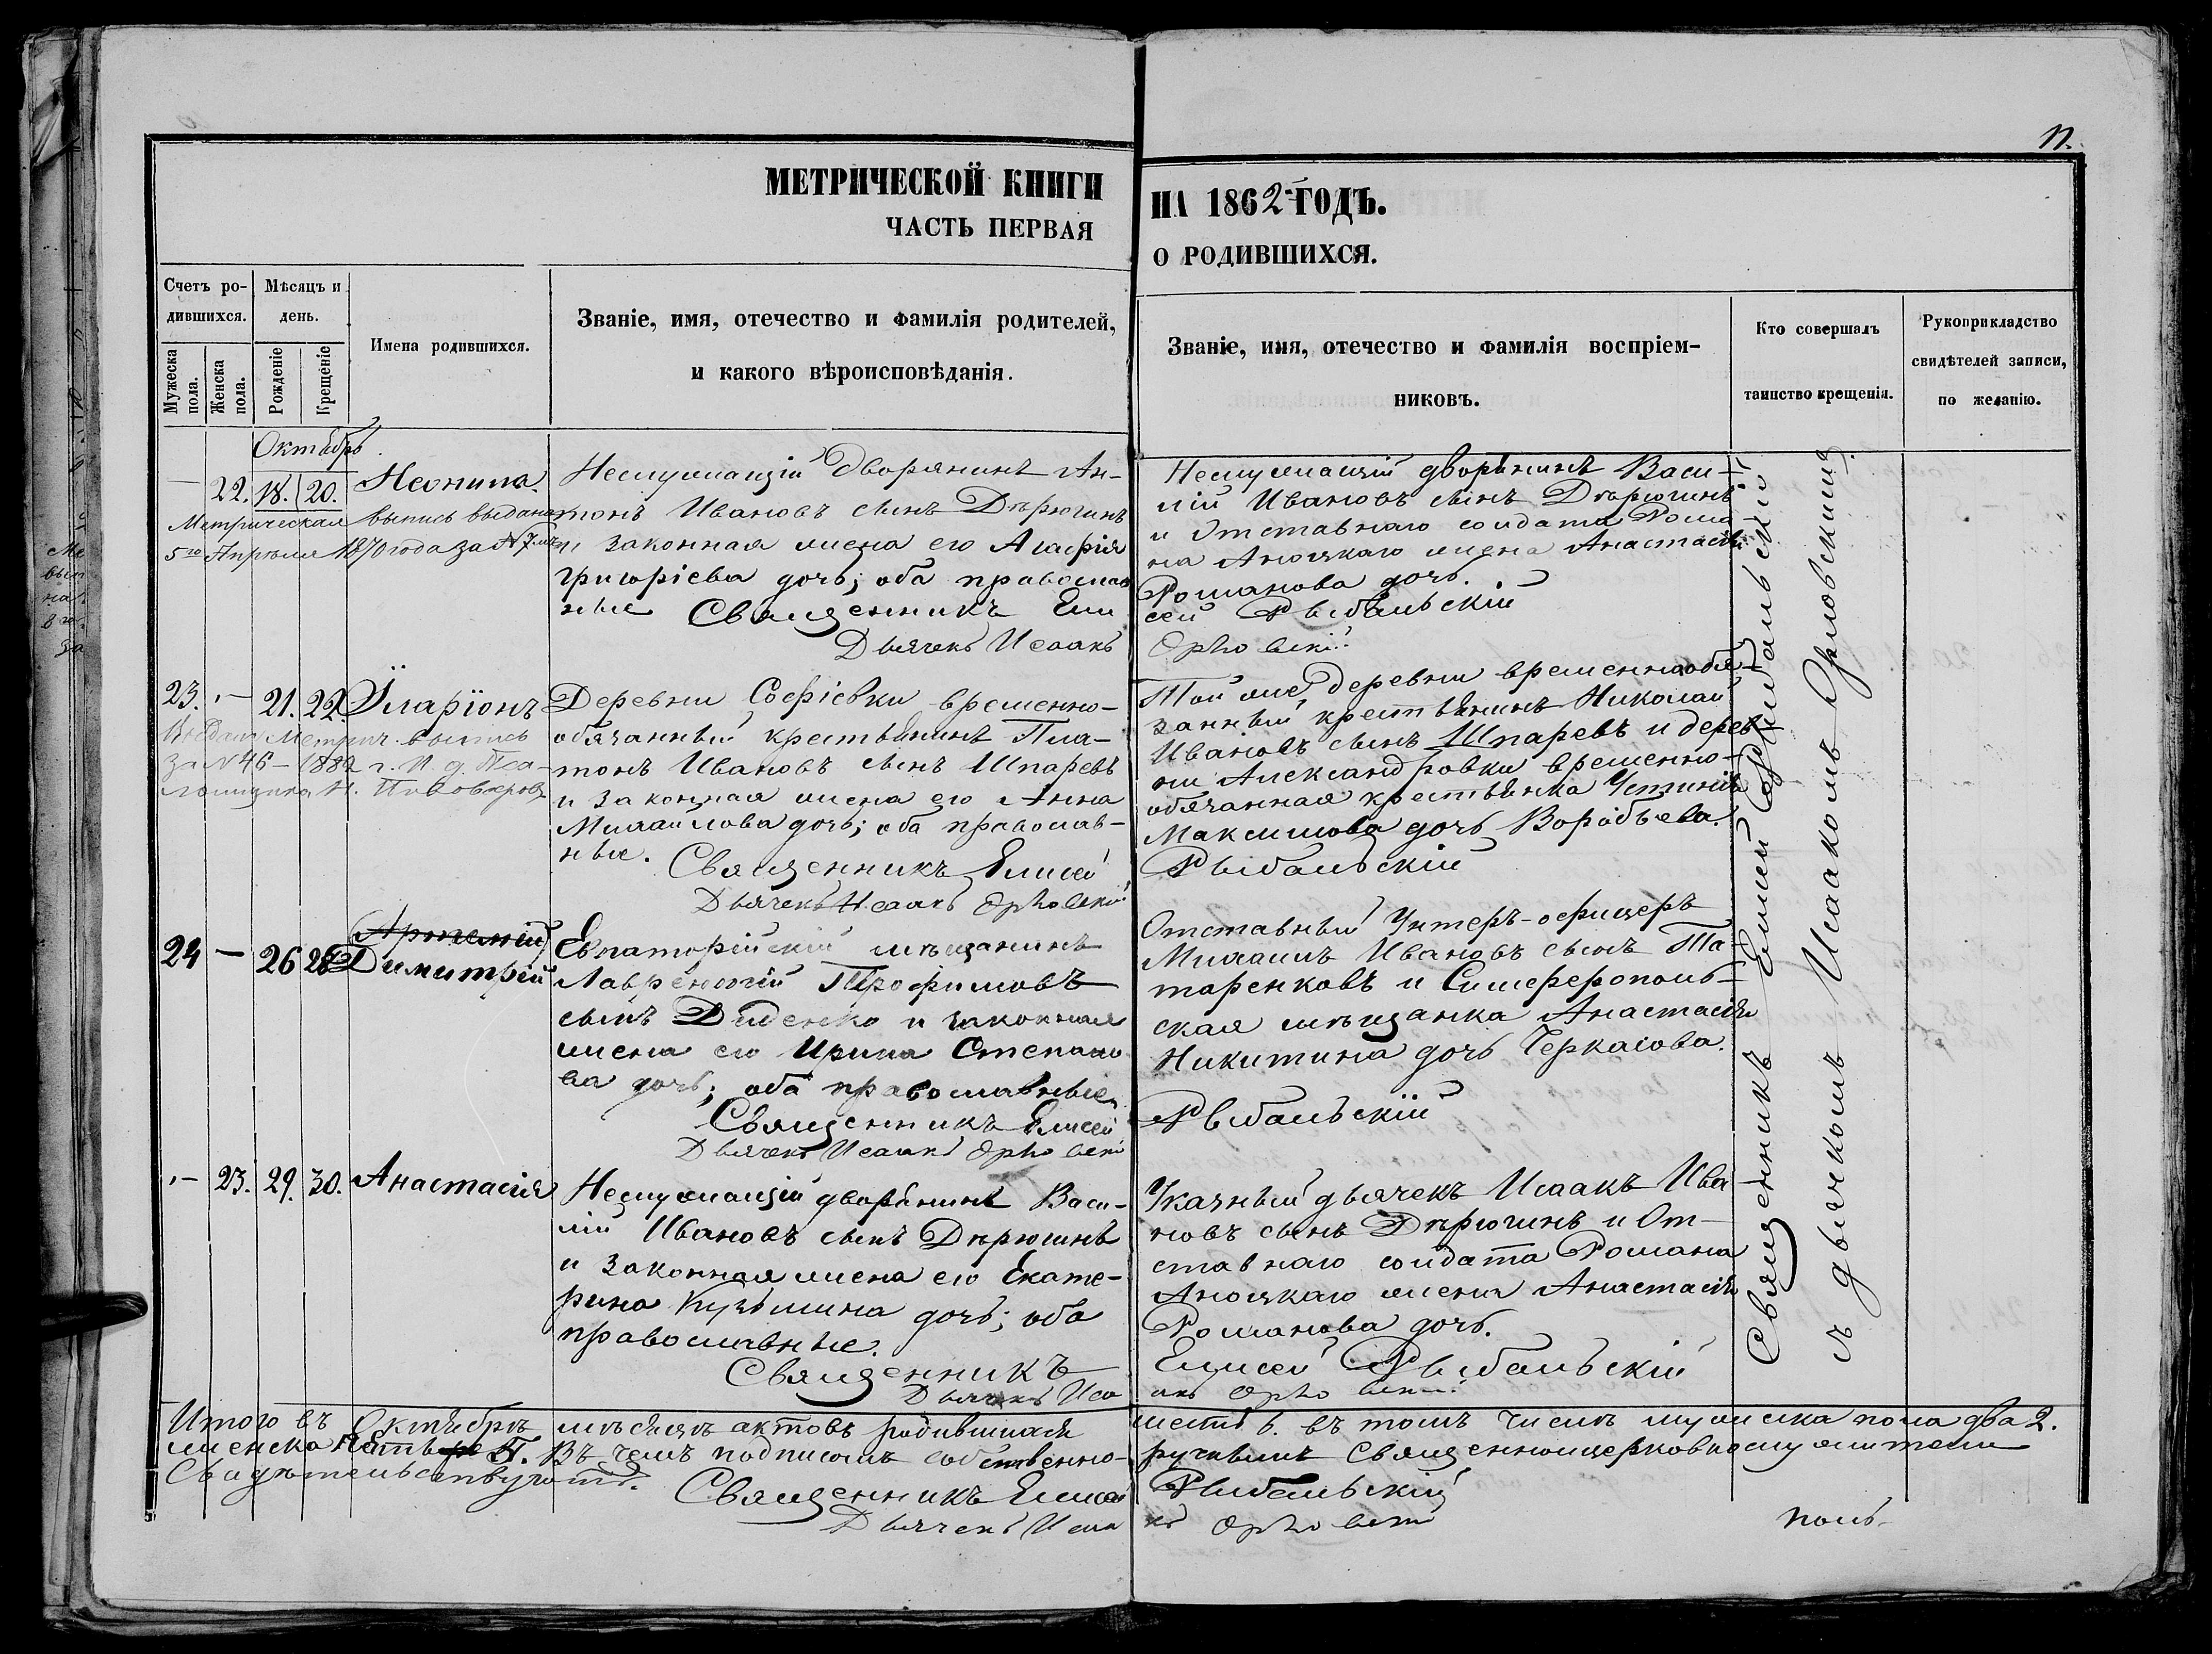 11.
МЕТРИЧЕСКОЙ КНИГИ НА 1862 ГОДЪ.
ЧАСТЬ ПЕРВАЯ О РОДИВШИХСЯ.
Счетъ родившихся.
Мужеска пола.
Женска пола.
Мѣсяцъ и день.
Рожденіе
Крещеніе
Имена родившихся.
Званіе, имя, отечество и фамилія родителей,
и какого вѣроисповѣданія.
Званіе, имя, отечество и фамилія воспріем-
никовъ.
Кто совершалъ
таинство крещенія.
Рукоприкладство
свидѣтелей записи,
по желанію.
Октябрь
— 22. 18. 20. Неонила
Метрическая выпись выдана
5го Апрѣля 1870 года за № 7
Неслужащій дворянинъ Ан-
тонъ Ивановъ сынъ Дѣрюгинъ
и законная жена его Агафія
Григоріева дочь; оба православ
ные Священникъ Ели
Дьячекъ Исаакъ
Неслужащій дворянинъ Васи-
лій Ивановъ сынъ Дѣрюгинъ
и Отставнаго солдата Рома-
на жена Анастасія
Романова дочь.
сей Рыбальскій
Орловскій
23. — 21. 22 Иларіонъ
Выдана Метрич. выпись
за № 46 – 1882 г.
Деревни Софіевки временно-
обязанный крестьянинъ Пла-
тонъ Ивановъ сынъ Шпаревъ
и законная жена его Анна
Михайлова дочь; оба православ-
ные. Священникъ Елисей
Дьячекъ Исаакъ Орловскій
Той же деревни временнообя-
занный крестьянинъ Николай
Ивановъ сынъ Шпаревъ и дерев
ни Александровки временно-
обязанная крестьянка Устинія
Максимова дочь Воробьева.
Рыбальскій
24 — 26 28 Артемій
Димитрій
Евпаторійскій мѣщанинъ
Лаврентій Трофимовъ
сынъ Диденко и законная
жена его Ирина Степано
ва дочь; оба православные
Священникъ Елисей
Дьячекъ Исаакъ Орловскій
Отставный Унтеръ-офицеръ
Михаилъ Ивановъ сынъ Та-
таренковъ и Симферополь-
ская мѣщанка Анастасія
Никитина дочь Черкасова.
Рыбальскій
— 23. 29. 30. Анастасія
Неслужащій дворянинъ Васи-
лій Ивановъ сынъ Дѣрюгинъ
и законная жена его Екате-
рина Кузьмина дочь; оба
православные.
Священникъ
Дьячекъ Иса
Указный дьячекъ Исаакъ Ива
новъ сынъ Дѣрюгинъ и От-
ставнаго солдата Романа
жена Анастасія
Романова дочь.
Елисей Рыбальскій
акъ Орловскій
Священникъ Елисей Рыбальскій
съ дьячкомъ Исаакомъ Орловскимъ.
Итого въ Октябрѣ мѣсяцѣ актовъ родившихся шесть 6. въ томъ числѣ мужеска пола два 2.
женска 4. Въ чемъ подписомъ собственно- ручнымъ Священноцерковнослужители
Свидѣтельствуютъ.
Священникъ Елисей Рыбальскій
Дьячекъ Исаа къ Орловскій
поль-